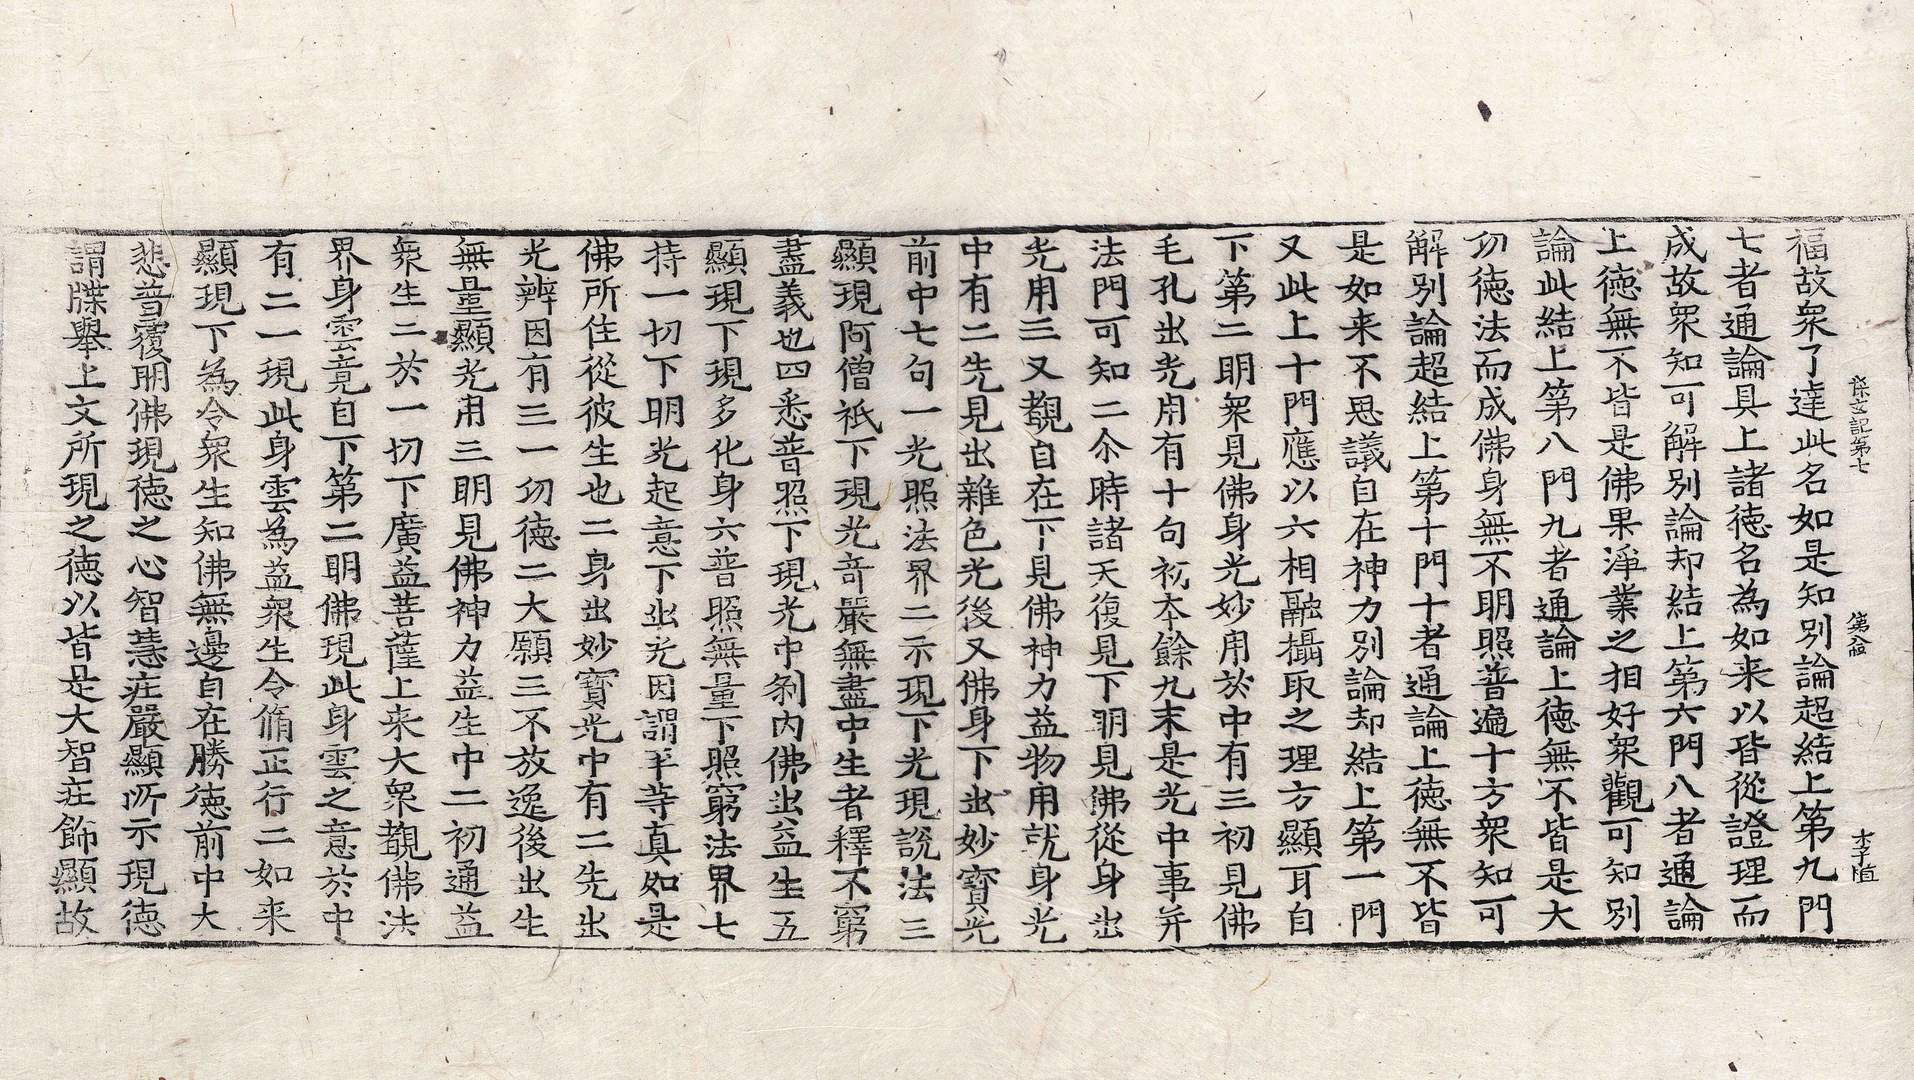 探玄記第七
第　　
李子　
福故眾了達此名如是知別論超結上第九門
七者通論具上諸德名為如来以皆從證理而
成故眾知可解別論却結上第六門八者通論
上德無不皆是佛果淨業之相好眾觀可知別
論此結上第八門九者通論上德無不皆是大
切德法而成佛身無不明照普遍十方眾知可
解別論超結上第十門十者通論上德無不皆
是如来不思議自在神力別論却結上第一門
又此上十門應以六相融攝取之理方顯耳自
下第二明眾見佛身光妙用於中有三初見佛
毛孔出光用有十句初本餘九末是光中事并
法門可知二尒時諸天復見下明見佛從身出
光用三又覩自在下見佛神力益物用就身光
中有二先見出雜色光後又佛身下出妙寶光
前中七句一光照法界二示現下光現說法三
顯現阿僧祇下現光奇嚴無盡中生者釋不窮
盡義也四悉普照下現光中剎內佛出益生五
顯現下現多化身六普照無量下照窮法界七
持一切下明光起意下出光因謂平等真如是
佛所住從彼生也二身出妙寶光中有二先出
光辨因有三一切德二大願三不放逸後出生
無量顯光用三明見佛神力益生中二初通益
眾生二於一切下廣益菩薩上来大眾覩佛法
界身雲竟自下第二明佛現此身雲之意於中
有二一現此身雲為益眾生令脩正行二如来
顯現下為令眾生知佛無邊自在勝德前中大
悲普覆明佛現德之心智慧莊嚴顯所示現德
謂牒舉上文所現之德以皆是大智莊飾顯故